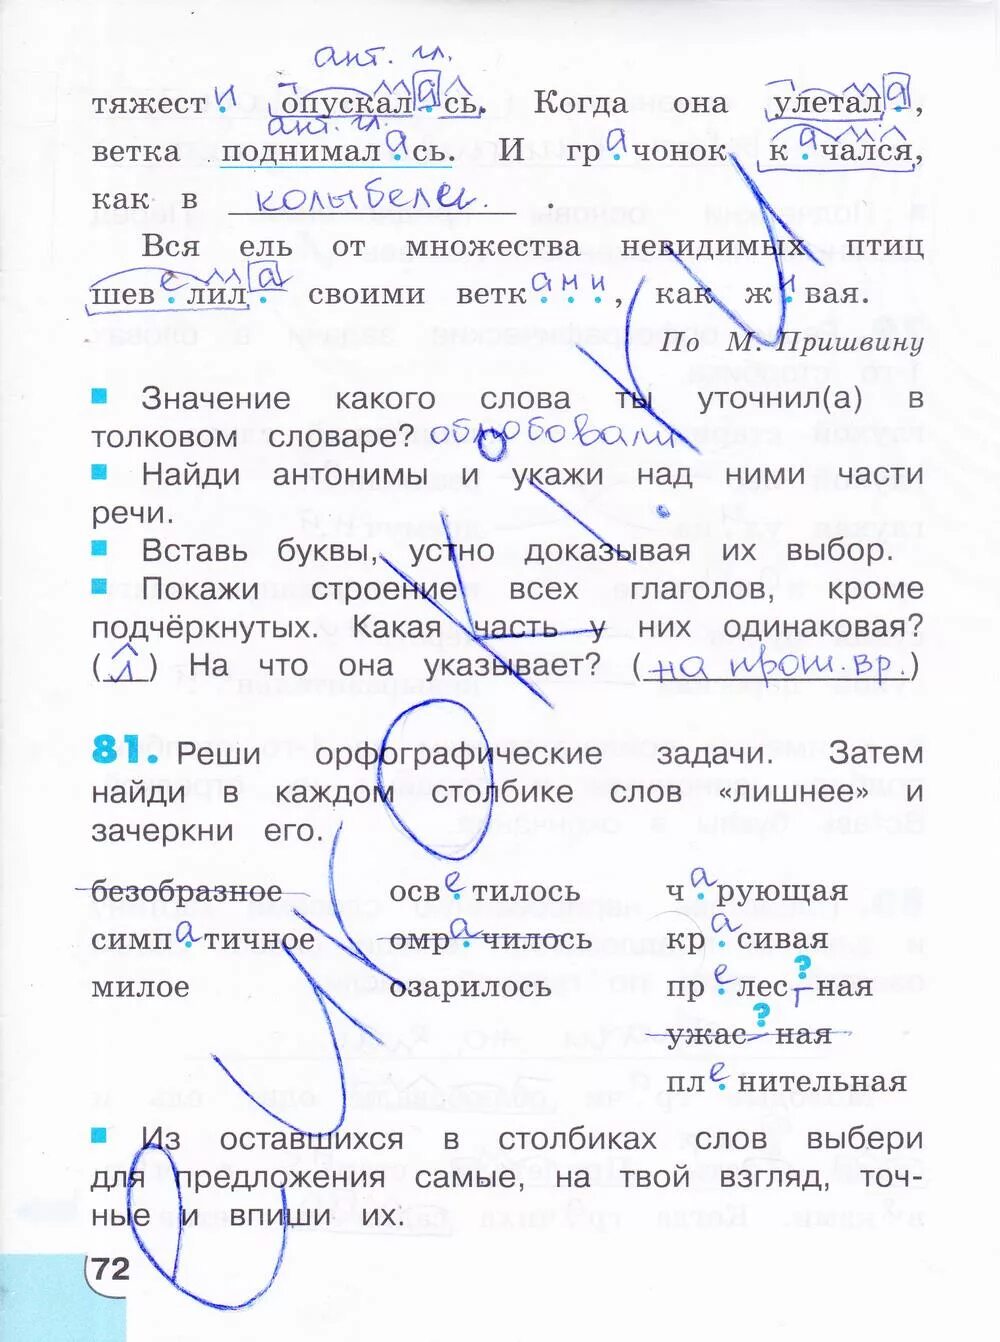 ант. гл.
тяжести опускалась. Когда она улетала,
ант. гл.
ветка поднималась. И грачонок качался,
как в колыбели.
Вся ель от множества невидимых птиц
шевелила своими ветками, как живая.
По М. Пришвину
Значение какого слова ты уточнил(а) в
толковом словаре? облюбовали
Найди антонимы и укажи над ними части
речи.
Вставь буквы, устно доказывая их выбор.
Покажи строение всех глаголов, кроме
подчёркнутых. Какая часть у них одинаковая?
(л) На что она указывает? (на прош. вр.)
81. Реши орфографические задачи. Затем
найди в каждом столбике слово «лишнее» и
зачеркни его.
безобразное осветилось чарующая
симпатичное омрачилось красивая
милое озарилось прелес?тная
ужас?ная
пленительная
Из оставшихся в столбиках слов выбери
для предложения самые, на твой взгляд, точ-
ные и впиши их.
72